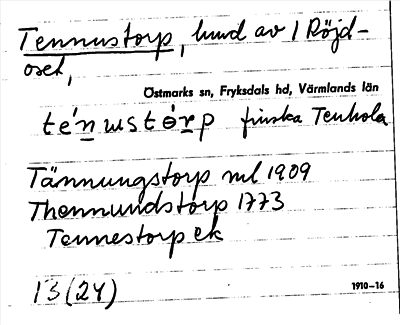 Tennustorp, lund av 1 Röjd-
oset,
Östmarks sn, Fryksdals hd, Värmlands län
té'n̲ustɵ́r̲p finska Tenhola
Tännungstorp ml 1909
Thennundstorp 1773
Tennestorp ek
13 (24)
1910-16